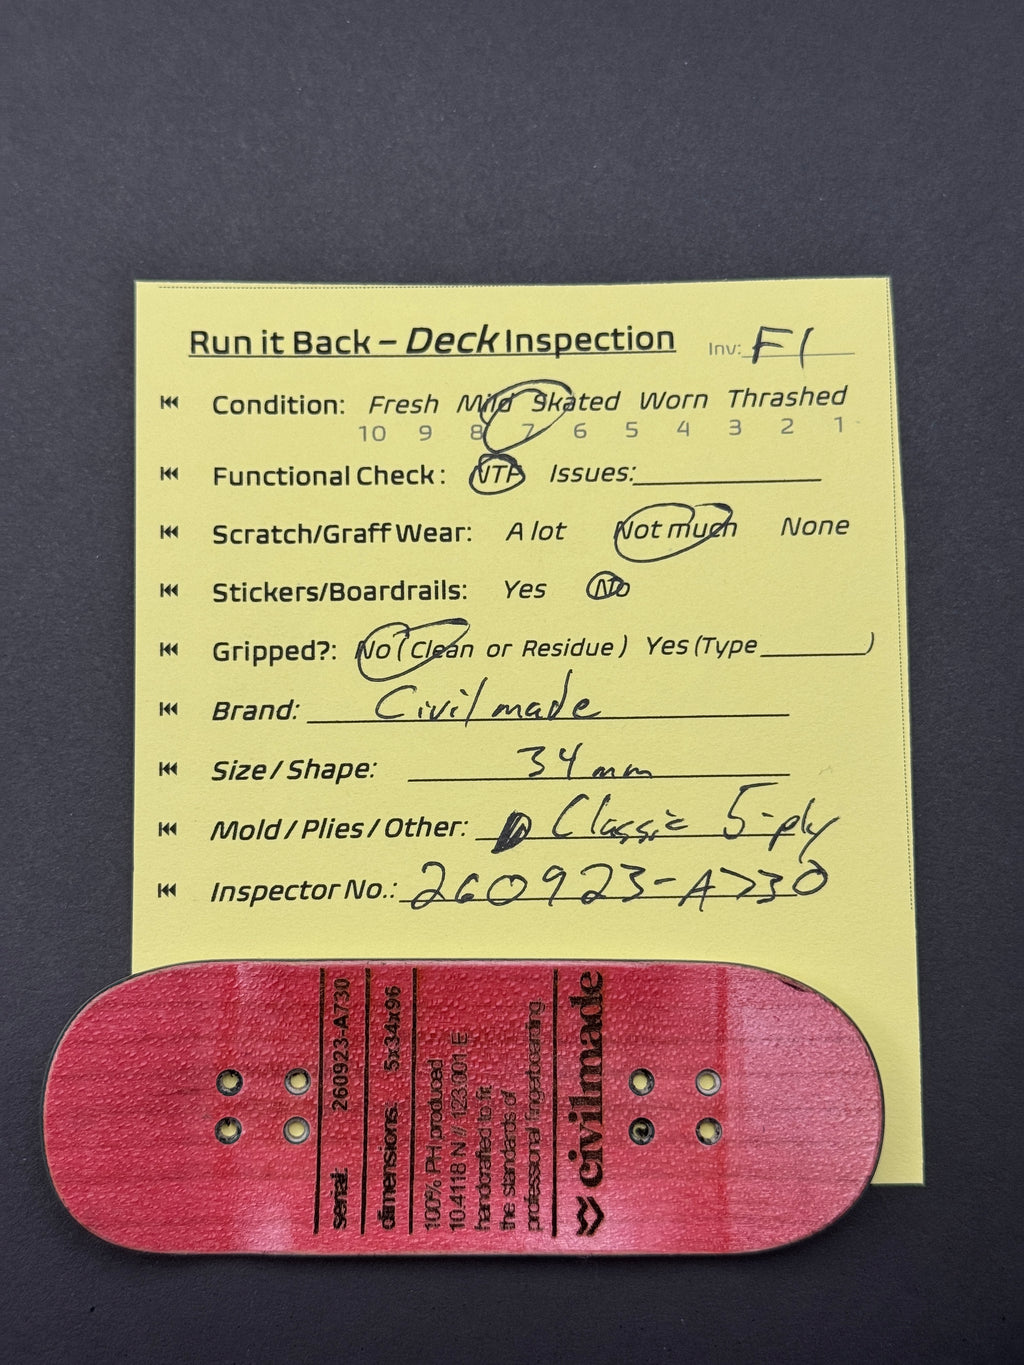 Run it Back – Deck Inspection Inv: F1
Condition: Fresh Mild Skated Worn Thrashed
10 9 8 7 6 5 4 3 2 1
Functional Check: NTF Issues:
Scratch/Graff Wear: A lot Not much None
Stickers/Boardrails: Yes No
Gripped?: No (Clean or Residue) Yes (Type )
Brand: Civilmade
Size / Shape: 34mm
Mold / Plies / Other: Classic 5-ply
Inspector No.: 260923-A730
serial: 260923-A730
dimensions: 5x34x96
100% PH produced
10.4118 N // 123.001 E
handcrafted to fit
the standards of
professional fingerboarding
civilmade